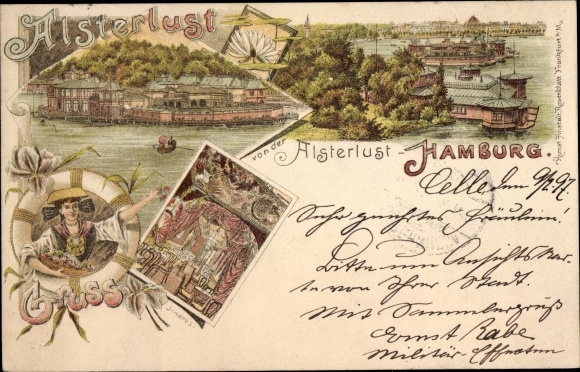 Alsterlust
Gruss
von der
Alsterlust - HAMBURG.
Inneres.
Celle, den 9/2.97.
Sehr geehrtes Fräulein!
Bitte um Ansichtskar-
te von Ihrer Stadt.
Mit Sammlergruß
Ernst Rabe
Militär-Effecten